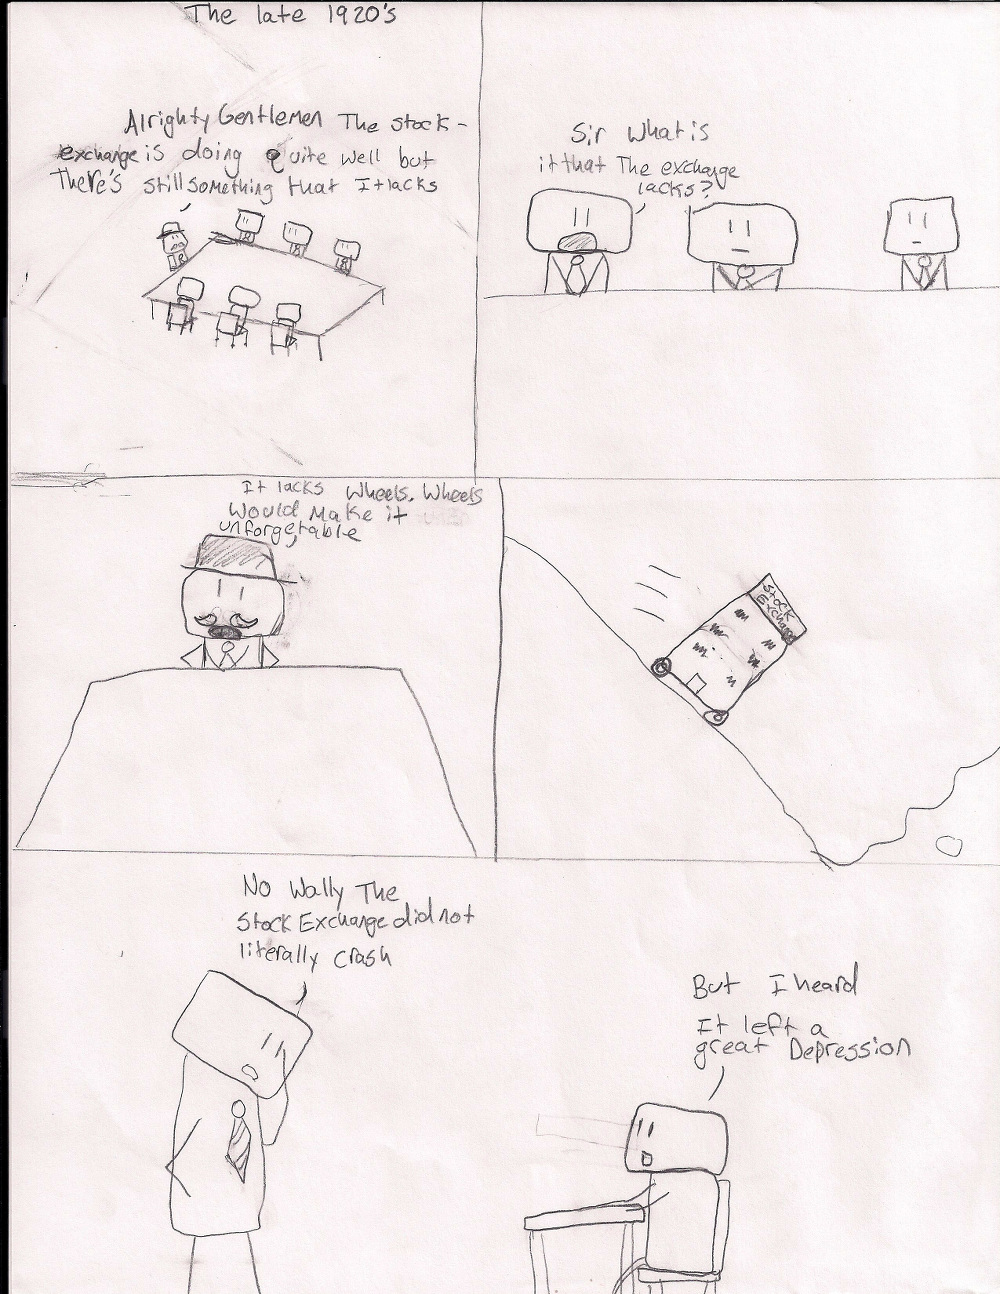 The late 1920's
Alrighty Gentlemen The stock-
exchange is doing quite well but
There's still something that It lacks
Sir what is
it that The exchange
lacks?
It lacks wheels. Wheels
Would Make it
unforgetable
Stock
Exchange
No Wally The
Stock Exchange did not
literally crash
But I heard
It left a
great Depression